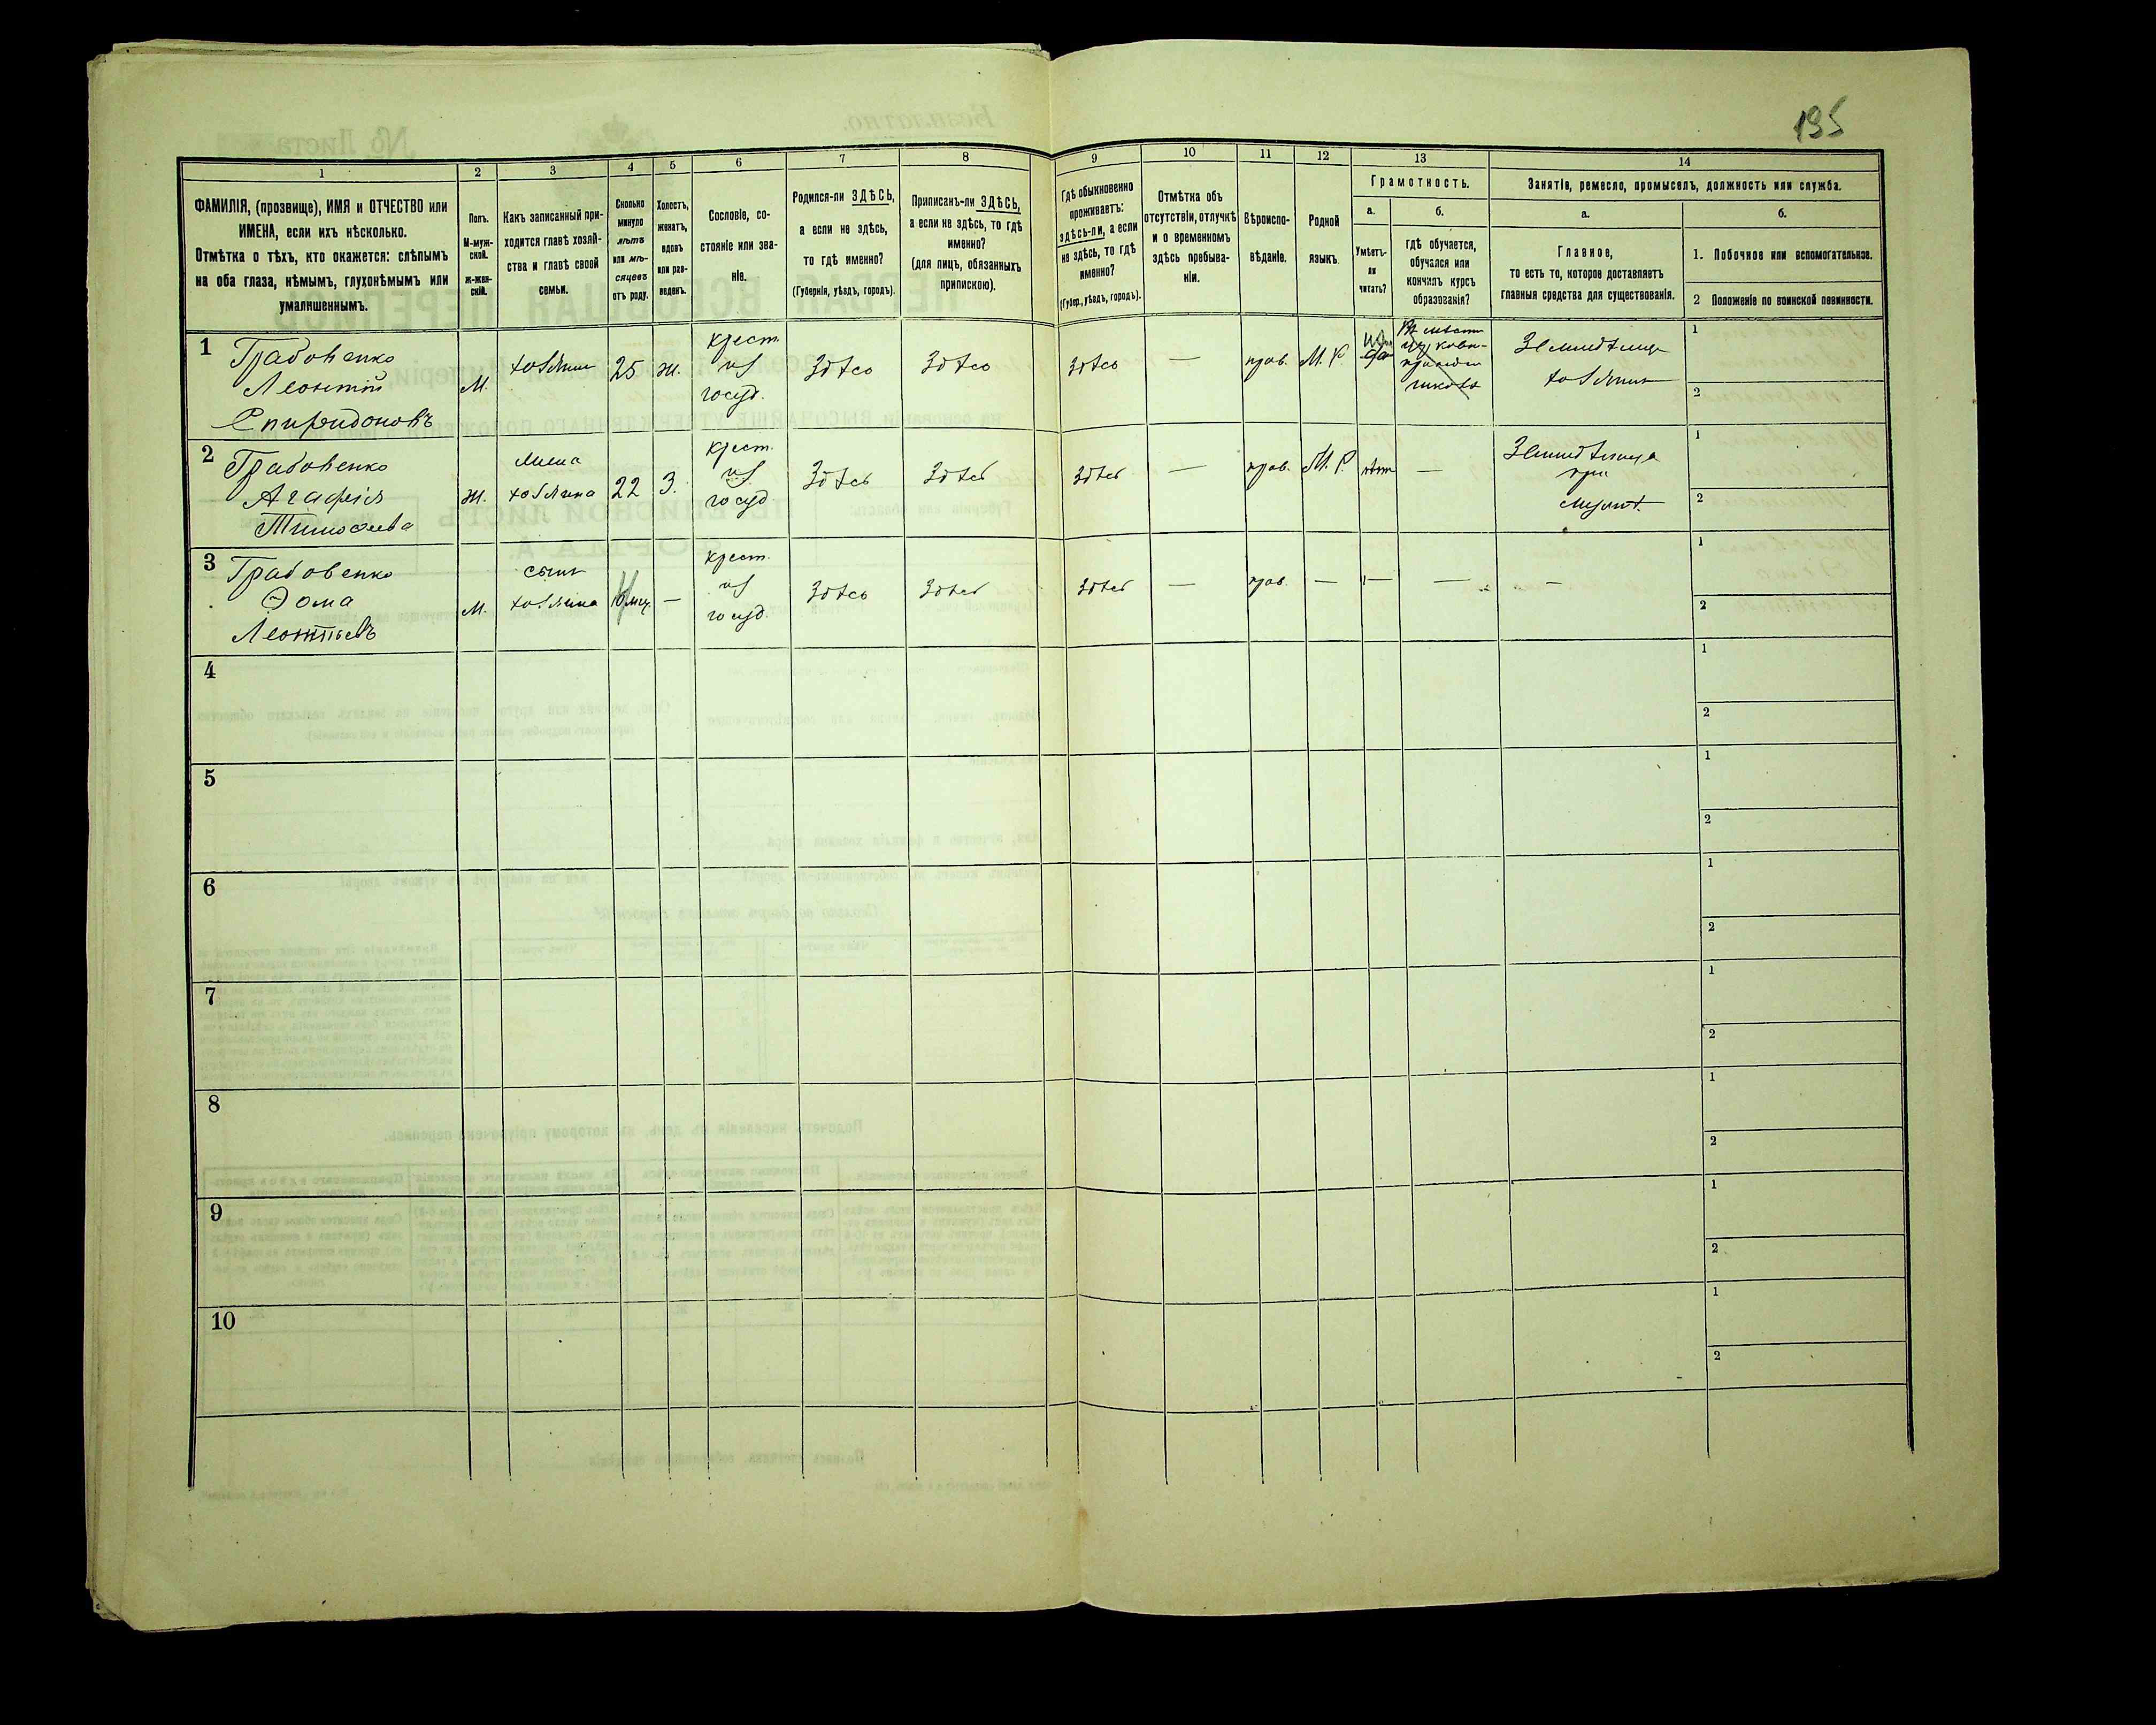 195
1
2
3
4
5
6
7
8
9
10
11
12
13
14
ФАМИЛІЯ, (прозвище), ИМЯ и ОТЧЕСТВО или
ИМЕНА, если ихъ нѣсколько.
Отмѣтка о тѣхъ, кто окажется: слѣпымъ
на оба глаза, нѣмымъ, глухонѣмымъ или
умалишеннымъ.
Полъ.
М-муж-
ской.
ж-жен-
скій.
Какъ записанный при-
ходится главѣ хозяй-
ства и главѣ своей
семьи.
Сколько
минуло
лѣтъ
или мѣ-
сяцевъ
отъ роду.
Холостъ,
женатъ,
вдовъ
или раз-
веденъ.
Сословіе, со-
стояніе или зва-
ніе.
Родился-ли ЗДѢСЬ,
а если не здѣсь,
то гдѣ именно?
(Губернія, уѣздъ, городъ).
Приписанъ-ли ЗДѢСЬ,
а если не здѣсь, то гдѣ
именно?
(для лицъ, обязанныхъ
припискою).
Гдѣ обыкновенно
проживаетъ:
здѣсь-ли, а если
не здѣсь, то гдѣ
именно?
(Губер., уѣздъ, городъ).
Отмѣтка объ
отсутствіи, отлучкѣ
и о временномъ
здѣсь пребыва-
ніи.
Вѣроиспо-
вѣданіе.
Родной
языкъ.
Грамотность.
а.
Умѣетъ-
ли
читать?
б.
гдѣ обучается,
обучался или
кончилъ курсъ
образованія?
Занятіе, ремесло, промыселъ, должность или служба.
а.
Главное,
то есть то, которое доставляетъ
главныя средства для существованія.
б.
1. Побочное или вспомогательное.
2 Положеніе по воинской повинности.
1
Грабовенко
Леонтій
Спиридоновъ
М.
хозяинъ
25
ж.
крест.
из
госуд.
здѣсь
здѣсь
здѣсь
—
прав.
М. Р.
Земледѣлец
хозяинъ
1
2
2
Грабовенко
Агафія
Тимофеева
ж.
жена
хозяина
22
З.
крест.
из
госуд.
здѣсь
здѣсь
здѣсь
—
прав.
М. Р.
нѣт
—
Земледѣлица
при
мужѣ.
1
2
3
Грабовенко
Ѳома
Леонтьевъ
М.
сынъ
хозяина
—
крест.
из
госуд.
здѣсь
здѣсь
здѣсь
—
прав.
—
—
—
—
1
2
4
1
2
5
1
2
6
1
2
7
1
2
8
1
2
9
1
2
10
1
2